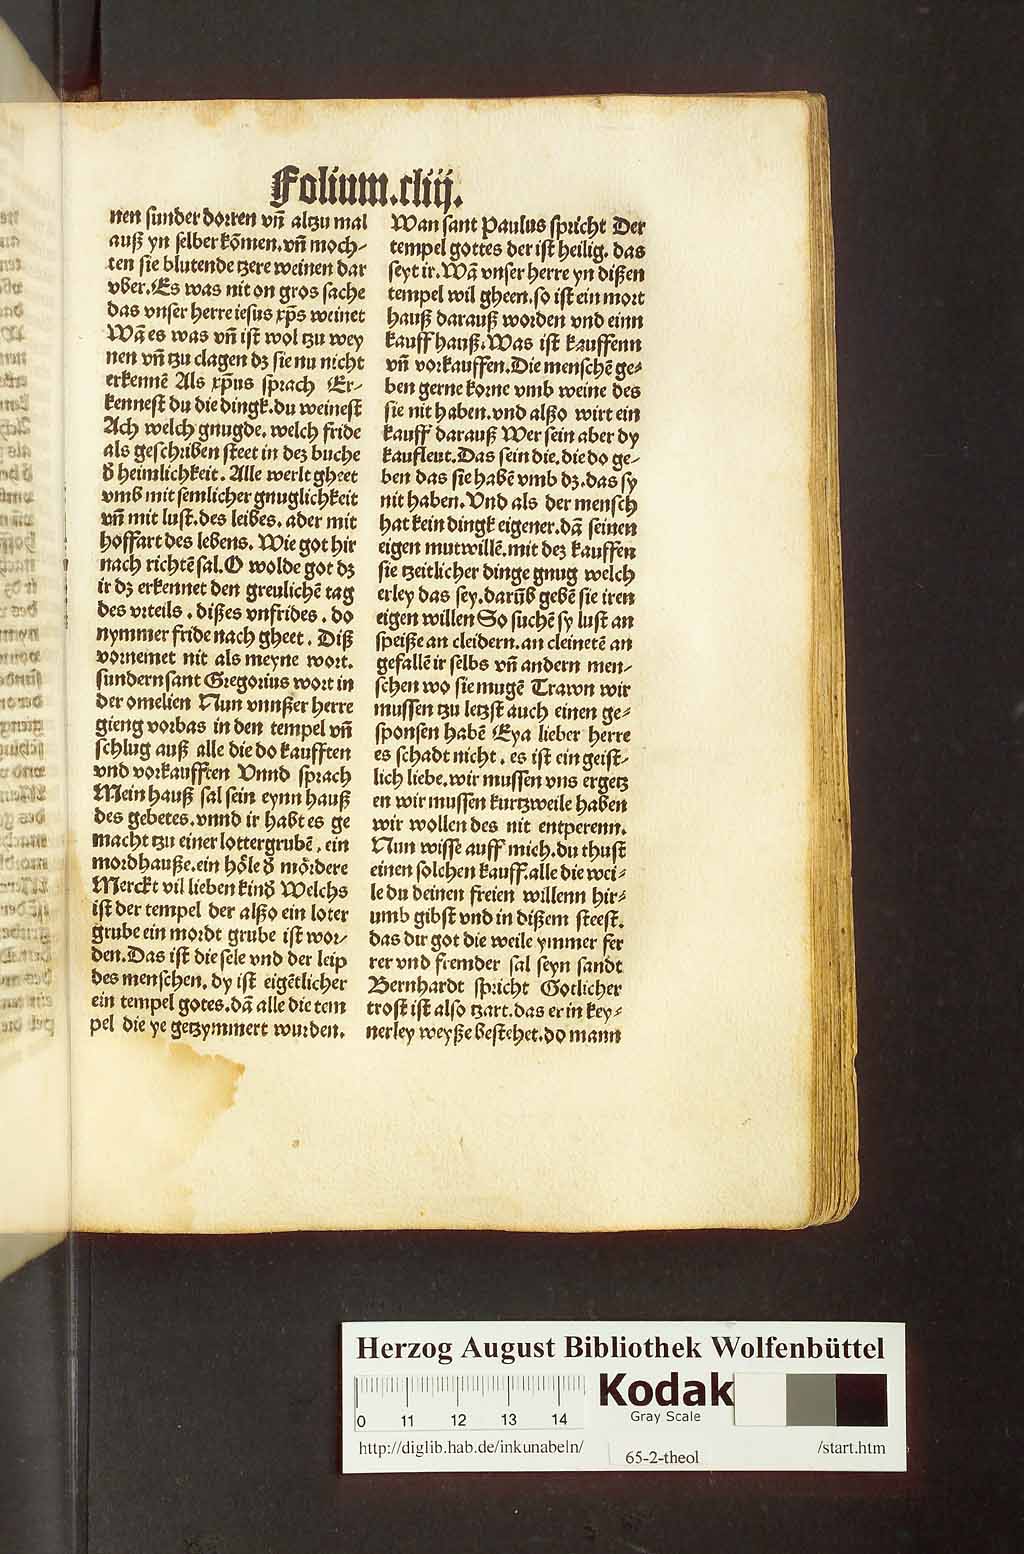 Folium.cliij.
nen sunder dorren vn̄ altzu mal
auß yn selber kōmen. vn̄ moch-
ten sie blutende tzere weinen dar
vber. Es was nit on gros sache
das vnser herre iesus xp̄s weinet
Wā es was vn̄ ist wol tzu wey
nen vn̄ tzu clagen dz sie nu nicht
erkennē Als xp̄us sprach Er-
kennest du die dingk. du weinest
Ach welch gnugde. welch fride
als geschriben steet in dez buche
d̕ heimlichkeit. Alle werlt gheet
vmb mit semlicher gnuglichkeit
vn̄ mit lust. des leibes. ader mit
hoffart des lebens. Wie got hir
nach richtē sal. O wolde got dz
ir dz erkennet den greulichē tag
des vrteils. dißes vnfrides. do
nymmer fride nach gheet. Diß
vornemet nit als meyne wort.
sundern sant Gregorius wort in
der omelien Nun vnnßer herre
gieng vorbas in den tempel vn̄
schlug auß alle die do kaufften
vnd vorkaufften Vnnd sprach
Mein hauß sal sein eynn hauß
des gebetes. vnnd ir habt es ge
macht tzu einer lottergrubē. ein
mordhauße. ein höle d̕ mördere
Merckt vil lieben kind̕ Welchs
ist der tempel der alßo ein loter
grube ein mordt grube ist wor-
den. Das ist die sele vnd der leip
des menschen. dy ist eigētlicher
ein tempel gotes. dā alle die tem
pel die ye getzymmert wurden.
Wan sant Paulus spricht Der
tempel gottes der ist heilig. das
seyt ir. Wā vnser herre yn dißen
tempel wil gheen. so ist ein mort
hauß darauß worden vnd einn
kauff hauß. Was ist kauffenn
vn̄ vorkauffen. Die menschē ge-
ben gerne korne vmb weine des
sie nit haben. vnd alßo wirt ein
kauff darauß Wer sein aber dy
kaufleut. Das sein die. die do ge-
ben das sie habē vmb dz. das sy
nit haben. Vnd als der mensch
hat kein dingk eigener. dā seinen
eigen mutwillē. mit dez kauffen
sie tzeitlicher dinge gnug welch
erley das sey. darūb gebē sie iren
eigen willen So suchē sy lust an
speiße an cleidern. an cleinetē an
gefallē ir selbs vn̄ andern men-
schen wo sie mugē Trawn wir
mussen tzu letzst auch einen ge-
sponsen habē Eya lieber herre
es schadt nicht. es ist ein geist-
lich liebe. wir mussen vns ergetz
en wir mussen kurtzweile haben
wir wollen des nit entperenn.
Nun wisse auff mich. du thust
einen solchen kauff. alle die wei-
le du deinen freien willenn hir-
umb gibst vnd in dißem steest.
das dir got die weile ymmer fer
rer vnd fremder sal seyn sandt
Bernhardt spricht Gotlicher
trost ist also tzart. das er in key-
nerley weyße bestehet. do mann
Herzog August Bibliothek Wolfenbüttel
0 11 12 13 14
Kodak
Gray Scale
http://diglib.hab.de/inkunabeln/
65-2-theol
/start.htm